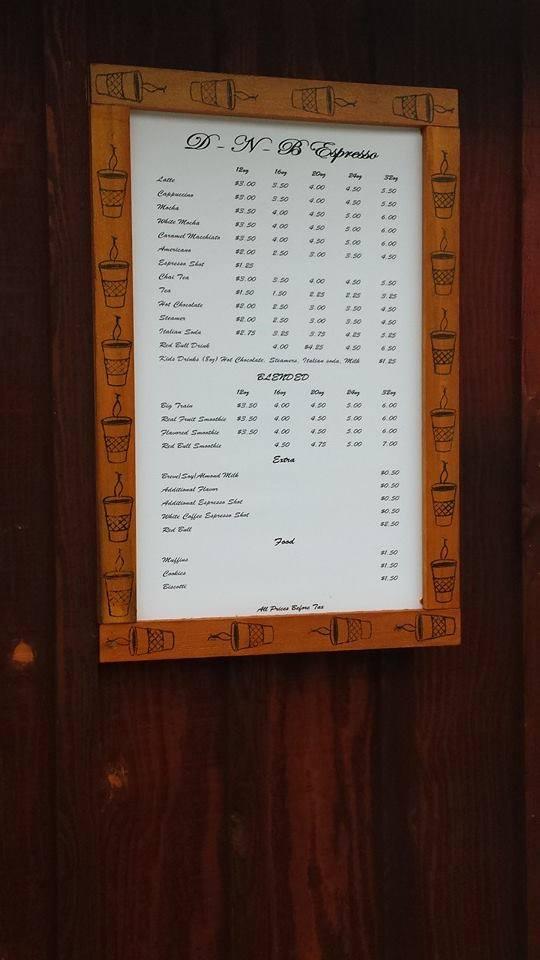 D - N - B Espresso
12oz 16oz 20oz 24oz 32oz
Latte $3.00 3.50 4.00 4.50 5.50
Cappuccino $3.00 3.50 4.00 4.50 5.50
Mocha $3.50 4.00 4.50 5.00 6.00
White Mocha $3.50 4.00 4.50 5.00 6.00
Caramel Macchiato $3.50 4.00 4.50 5.00 6.00
Americano $2.00 2.50 3.00 3.50 4.50
Espresso Shot $1.25
Chai Tea $3.00 3.50 4.00 4.50 5.50
Tea $1.50 1.50 2.25 2.25 3.25
Hot Chocolate $2.00 2.50 3.00 3.50 4.50
Steamer $2.00 2.50 3.00 3.50 4.50
Italian Soda $2.75 3.25 3.75 4.25 5.25
Red Bull Drink 4.00 $4.25 4.50 6.50
Kids Drinks (8oz) Hot Chocolate, Steamers, Italian soda, Milk $1.25
BLENDED
12oz 16oz 20oz 24oz 32oz
Big Train $3.50 4.00 4.50 5.00 6.00
Real Fruit Smoothie $3.50 4.00 4.50 5.00 6.00
Flavored Smoothie $3.50 4.00 4.50 5.00 6.00
Red Bull Smoothie 4.50 4.75 5.00 7.00
Extra
Breve/Soy/Almond Milk $0.50
Additional Flavor $0.50
Additional Espresso Shot $0.50
White Coffee Espresso Shot $0.50
Red Bull $2.50
Food
Muffins $1.50
Cookies $1.50
Biscotti $1.50
All Prices Before Tax